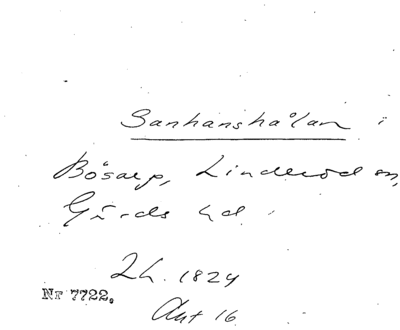 Sanhanshålan i
Bösarp, Linderöd sn,
Gärds hd.
Lh. 1824
Nr 7722.
Akt 16